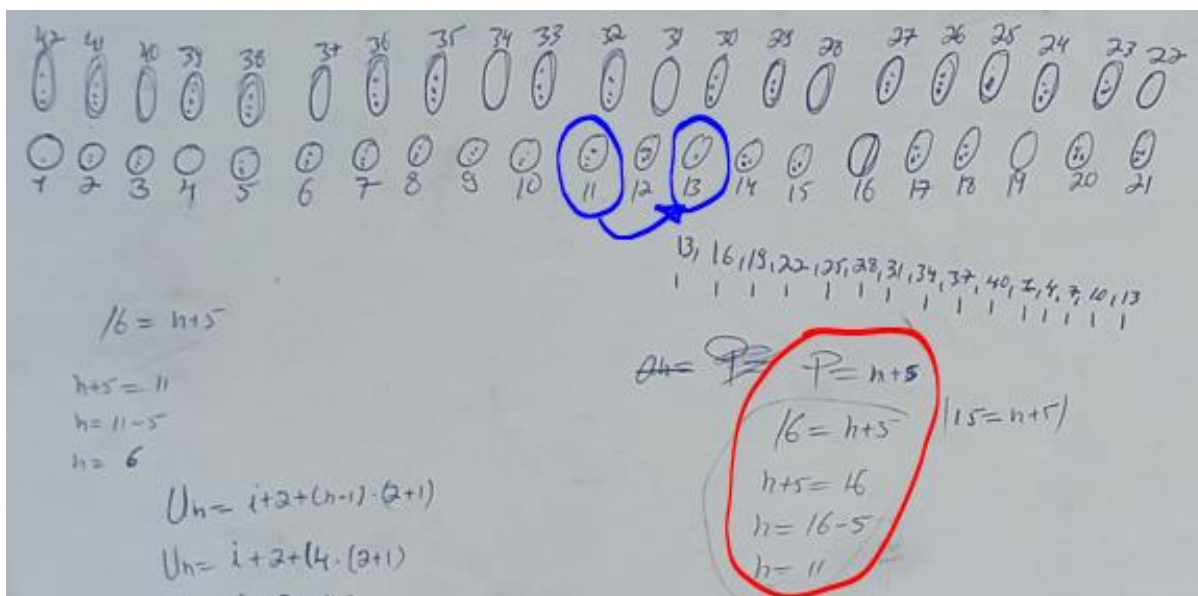 42 41 40 39 38 37 36 35 34 33 32 31 30 29 28 27 26 25 24 23 22
1 2 3 4 5 6 7 8 9 10 11 12 13 14 15 16 17 18 19 20 21
13, 16, 19, 22, 25, 28, 31, 34, 37, 40, 1, 4, 7, 10, 13
16 = n+5
n+5 = 11
n = 11-5
n = 6
Un = i+2+(n-1)·(2+1)
Un = i+2+(4·(2+1)
P = n+5
16 = n+5 (15 = n+5)
n+5 = 16
n = 16-5
n = 11